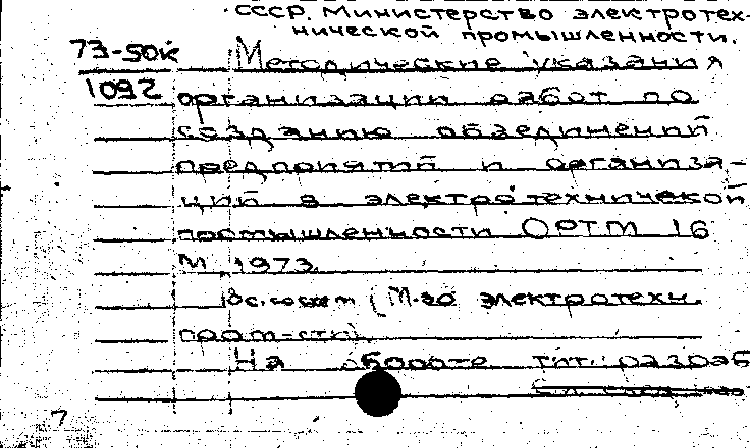 СССР. Министерство электротех-
нической промышленности.
73-50к Методические указания
1092 организации работ по
созданию обьединений
предприятий и организа-
ций в электротехнической
промышленности ОРТМ 16
М 1973
с. (М-во электротехн.
пром-сти).
На обороте тит.: разраб
7